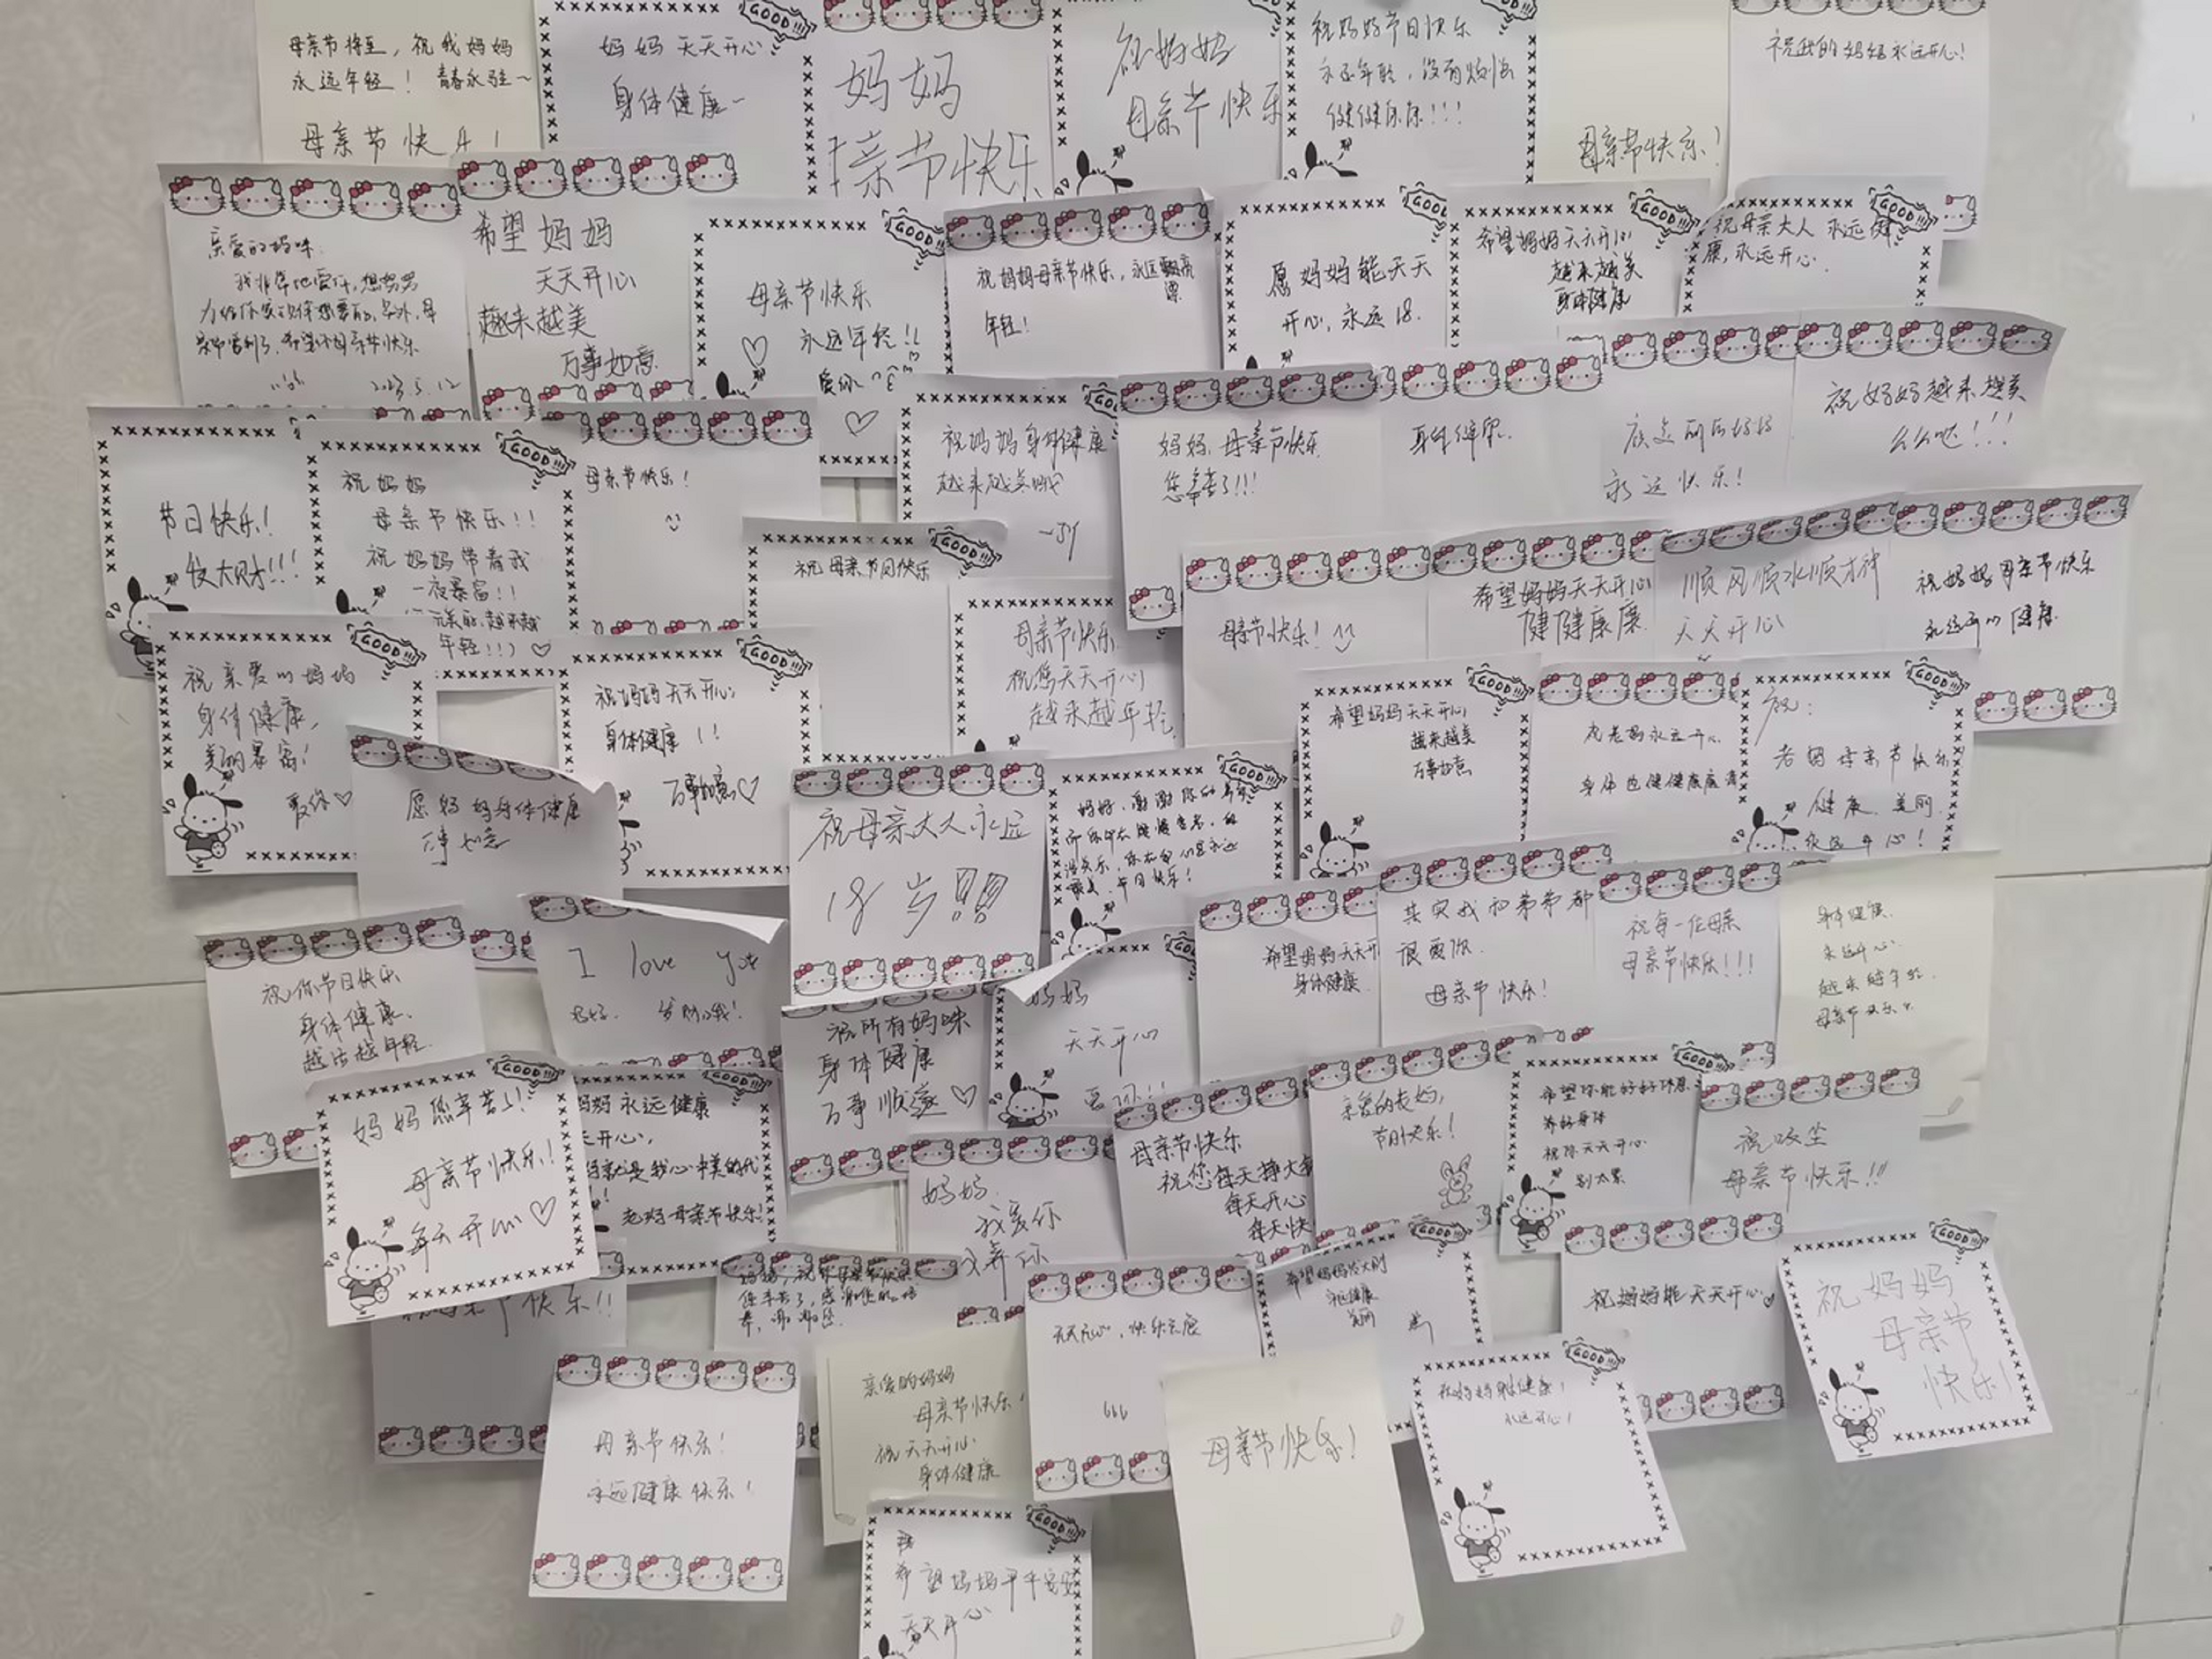 母亲节将至，祝我妈妈
永远年轻！青春永驻~
母亲节快乐！
GOOD!!!
妈妈天天开心
身体健康~
妈妈
亲节快乐
祝妈妈
母亲节快乐
祝妈妈节日快乐
永远年轻，没有烦恼
健健康康！！！
母亲节快乐！
祝我的妈妈永远开心！
亲爱的妈咪
我非常地爱你，想努努
力给你买
希望你母亲节快乐
2023.5.12
希望妈妈
天天开心
越来越美
万事如意
GOOD!!!
母亲节快乐
永远年轻！！
爱你
祝妈妈母亲节快乐，永远漂亮
年轻！
GOOD
愿妈妈能天天
开心，永远18.
GOOD!!!
希望妈妈天天开心
越来越美
身体健康
GOOD!!!
祝母亲大人永远健
康，永远开心.
节日快乐！
发大财！！！
GOOD!!!
祝妈妈
母亲节快乐！！
祝妈妈带着我
一夜暴富！！
年轻！！）
母亲节快乐！
祝妈妈身体健康
越来越美哦
妈妈，母亲节快乐
您辛苦了！！！
身体健康.
永远快乐！
祝妈妈越来越美
么么哒！！！
GOOD!!!
祝母亲节日快乐
母亲节快乐
祝您天天开心
越来越年轻
母亲节快乐！
希望妈妈天天开心
健健康康
顺风顺水顺财神
天天开心
祝妈妈母亲节快乐
永远开心健康.
GOOD!!!
祝亲爱的妈妈
身体健康，
美丽暴富！
爱你
GOOD!!!
祝妈妈天天开心
身体健康！！
万事如意
愿妈妈身体健康
事如意
祝母亲大人永远
18岁!!!!
GOOD!!!
妈妈，谢谢你的
节日快乐！
GOOD!!!
希望妈妈天天开心
越来越美
万事如意
老妈永远开心
身体也健健康康
GOOD!!!
祝：
老妈母亲节快乐
健康 美丽
永远开心！
祝你节日快乐
身体健康.
越活越年轻.
I love you
祝所有妈咪
身体健康
万事顺遂
妈妈
天天开心
希望妈妈天天开
身体健康
其实我和弟弟都
很爱你.
母亲节快乐！
祝每一位母亲
母亲节快乐！！！
身体健康.
永远开心.
越来越年轻.
母亲节快乐
GOOD!!!
妈妈您辛苦了！
母亲节快乐！
每天开心
GOOD!!!
妈妈永远健康
天开心，
老妈母亲节快乐！
妈妈
我爱你
母亲节快乐
祝您每天挣大
每天开心
每天快
亲爱的老妈，
节日快乐！
GOOD!!!
希望你能好好休息
养好身体
祝你天天开心
别太累
母亲节快乐！！！
节快乐！！
GOOD!!!
希望妈妈发大财
永远健康
美丽
祝妈妈能天天开心
GOOD!!!
祝妈妈
母亲节
快乐！
母亲节快乐！
永远健康快乐！
亲爱的妈妈
母亲节快乐！
祝天天开心
身体健康
666
母亲节快乐！
GOOD!!!
祝妈妈身体健康！
永远开心！
GOOD!!!
希望妈妈平平安安
天天开心